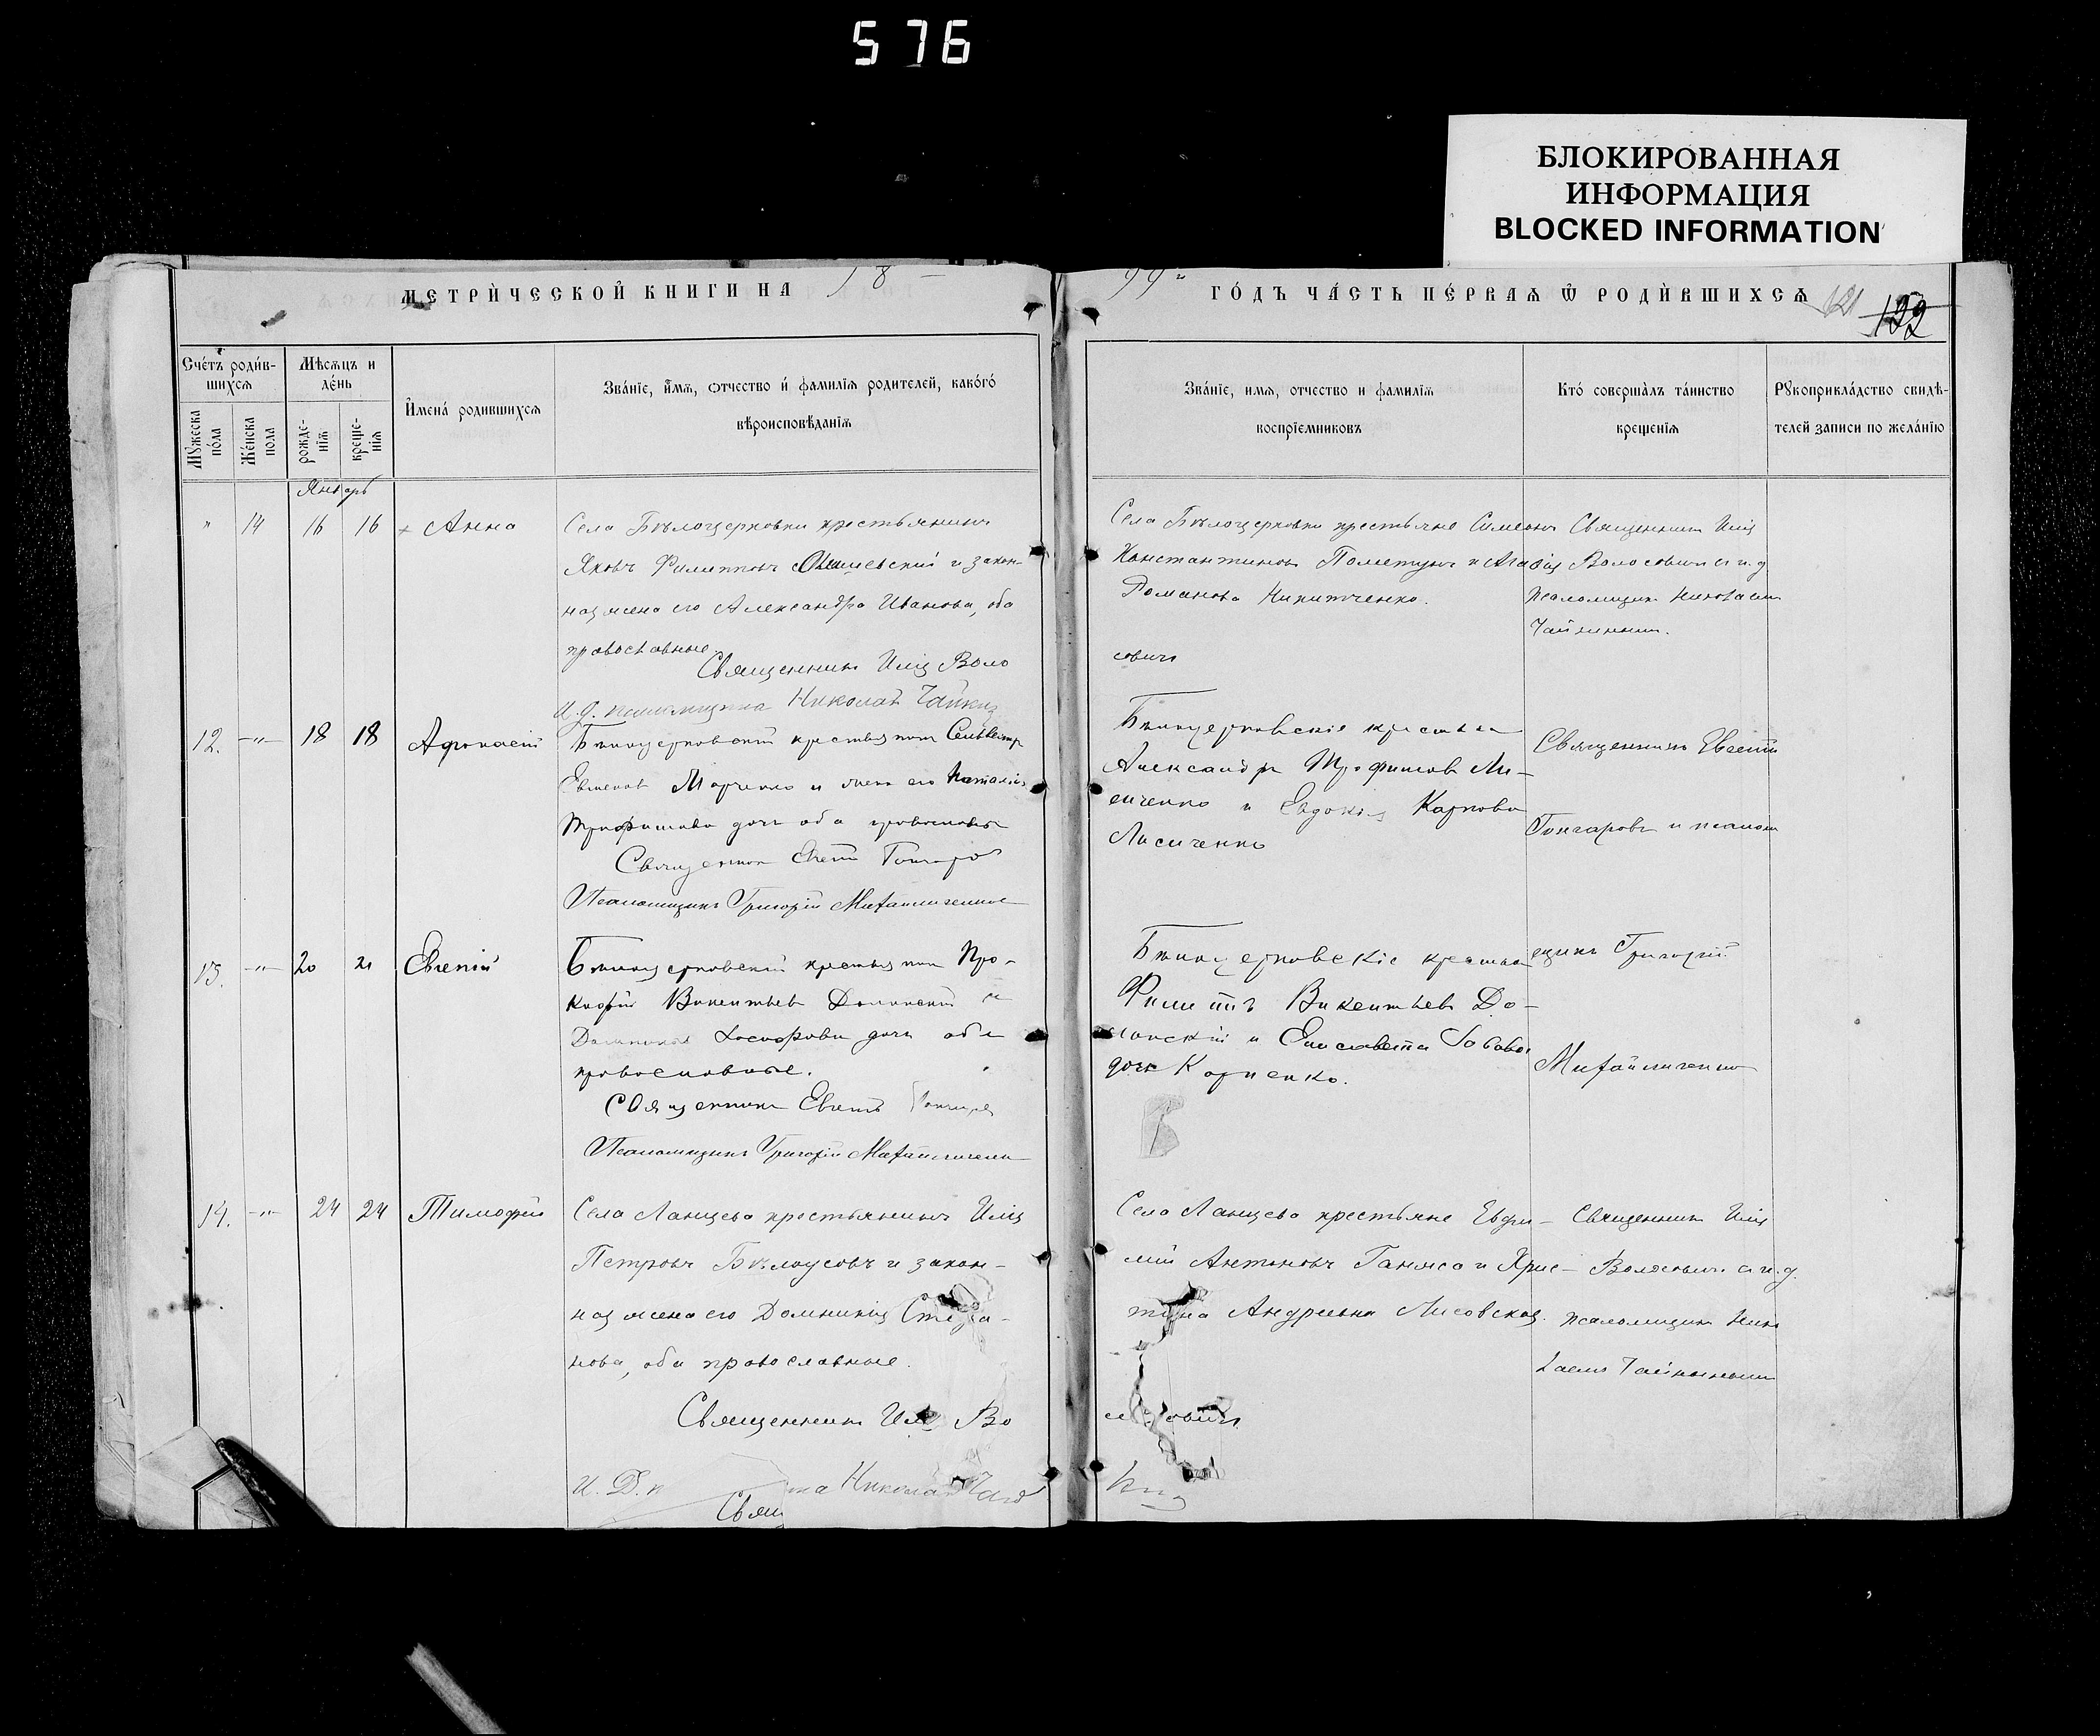 576
БЛОКИРОВАННАЯ
ИНФОРМАЦИЯ
BLOCKED INFORMATION
МЕТРИЧЕСКОЙ КНИГИ НА 18
99 г ГОДЪ ЧАСТЬ ПЕРВАЯ Ѿ РОДИВШИХСЯ
121 122
Счетъ родив-
шихся
Мѣсяцъ и
день
Мужеска
пола
Женска
пола
рожде-
нія
креще-
нія
Имена родившихся
Званіе, имя, отчество и фамилія родителей, какого
вѣроисповѣданія
Званіе, имя, отчество и фамилія
воспріемниковъ
Кто совершалъ таинство
крещенія
Рукоприкладство свидѣ-
телей записи по желанію
Январь
" 14 16 16 Анна
Села Бѣлоцерковки крестьянинъ
Яковъ Филипповъ и закон-
ная жена его Александра Иванова, оба
православные
Священникъ Илія Воло
И.д. псаломщика Николай Чайкин
Села Бѣлоцерковки крестьяне Симеонъ
Константиновъ и Агафія
Романова Никитченко.
совичъ
Священникъ Илія
Волосовичъ с и.д.
псаломщик Николаем
Чайкиным.
12. -"- 18 18 Афанасій
Бѣлоцерковскій крестьянин Сельвестр
Евменов Марченко и жена его Наталія
Трофимова дочь оба православные
Священник Евгеній Гончаров
Псаломщикъ Григорій Михайличенко
Бѣлоцерковскіе крестьяне
Александръ Трофимов Ли-
сиченко и Евдокія Карпова
Лисиченко
Священникъ Евгеній
Гончаровъ и псалом
13. -"- 20 21 Евгеній
Бѣлоцерковскій крестьянин Про-
кофій Викентьев Долинскій и
дочь оба
православные.
Священникъ Евгеній Гончаров
Псаломщикъ Григорій Михайличенко
Бѣлоцерковскіе крестьяне
Филиппъ Викентьевъ До-
линскій и Елисавета Саввова
дочь Карпенко.
щикъ Григорій
Михайличенко
14. -"- 24 24 Тимофей
Села Ланцево крестьянинъ Илія
Петровъ Бѣлоусовъ и закон-
ная жена его Домникія Стефа-
нова, оба православные.
Священникъ Илія Во
И. Д. п ка Николай Чай
Свящ
Села Ланцево крестьяне Евфи-
мій Антоновъ и Хрис-
тина Андреевна Лисовская.
лосовичъ
кин
Священникъ Илія
Волосовичъ с и.д.
псаломщик Нико
лаемъ Чайкиным